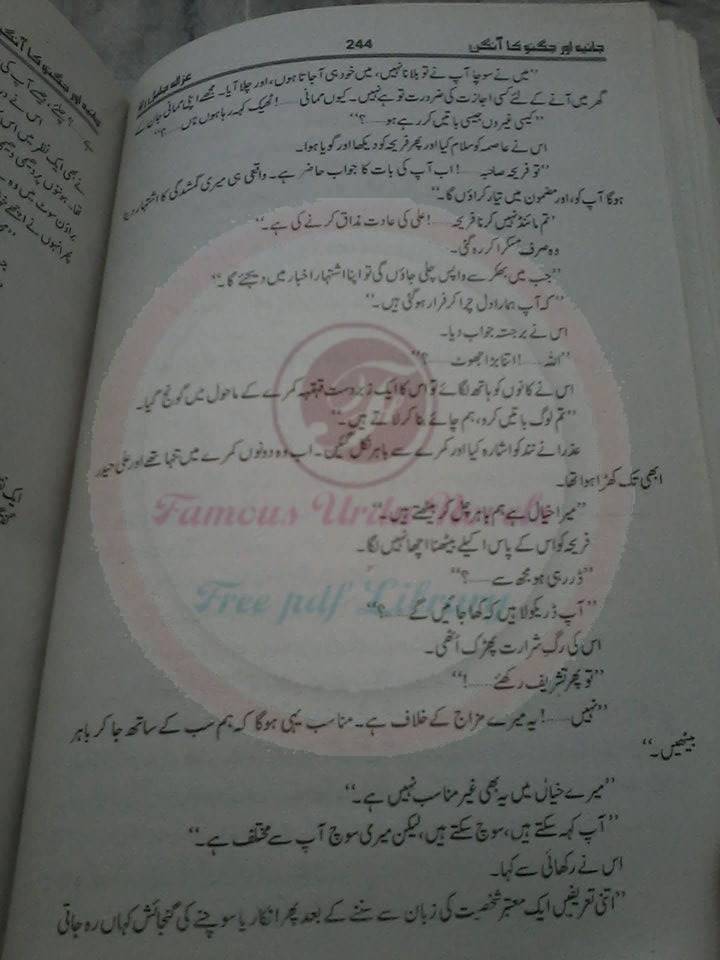 جانیہ اور جگنو کا آنگن
244
غزالہ جلیل راؤ
”میں نے سوچا آپ نے تو بلانا نہیں، میں خود ہی آ جاتا ہوں، اور چلا آیا۔ مجھے اپنی ممانی جان کے
گھر میں آنے کے لئے کسی اجازت کی ضرورت تو ہے نہیں۔ کیوں ممانی.....! ٹھیک کہہ رہا ہوں ناں.....؟“
”کیسی غیروں جیسی باتیں کر رہے ہو.....؟“
اس نے عاصمہ کو سلام کیا اور پھر فریحہ کو دیکھا اور گویا ہوا۔
”تو فریحہ صاحبہ.....! اب آپ کی بات کا جواب حاضر ہے۔ واقعی ہی میری گمشدگی کا اشتہار دینا
ہوگا آپ کو، اور مضمون میں تیار کراؤں گا۔“
”تم مائنڈ نہیں کرنا فریحہ.....! علی کی عادت مذاق کرنے کی ہے۔“
وہ صرف مسکرا کر رہ گئی۔
”جب میں بھکر سے واپس چلی جاؤں گی تو اپنا اشتہار اخبار میں دیجئے گا۔“
”کہ آپ ہمارا دل چرا کر فرار ہو گئی ہیں۔“
اس نے برجستہ جواب دیا۔
”اللہ.....! اتنا بڑا جھوٹ.....؟“
اس نے کانوں کو ہاتھ لگائے تو اس کا ایک زبردست قہقہہ کمرے کے ماحول میں گونج گیا۔
”تم لوگ باتیں کرو، ہم چائے بنا کر لاتے ہیں۔“
عذرا نے نند کو اشارہ کیا اور کمرے سے باہر نکل گئیں۔ اب وہ دونوں کمرے میں تنہا تھے اور علی حیدر
ابھی تک کھڑا ہوا تھا۔
”میرا خیال ہے ہم باہر چل کر بیٹھتے ہیں۔“
Famous Urdu Novels
فریحہ کو اس کے پاس اکیلے بیٹھنا اچھا نہیں لگا۔
”ڈر رہی ہو مجھ سے.....؟“
Free pdf Library
”آپ ڈریکولا ہیں کہ کھا جائیں گے.....؟“
اس کی رگِ شرارت پھڑک اُٹھی۔
”تو پھر تشریف رکھئے.....!“
”نہیں.....! یہ میرے مزاج کے خلاف ہے۔ مناسب یہی ہوگا کہ ہم سب کے ساتھ جا کر باہر
بیٹھیں۔“
”میرے خیال میں یہ بھی غیر مناسب نہیں ہے۔“
”آپ کہہ سکتے ہیں، سوچ سکتے ہیں، لیکن میری سوچ آپ سے مختلف ہے۔“
اس نے رکھائی سے کہا۔
”اتنی تعریفیں ایک معتبر شخصیت کی زبان سے سننے کے بعد پھر انکار یا سوچنے کی گنجائش کہاں رہ جاتی